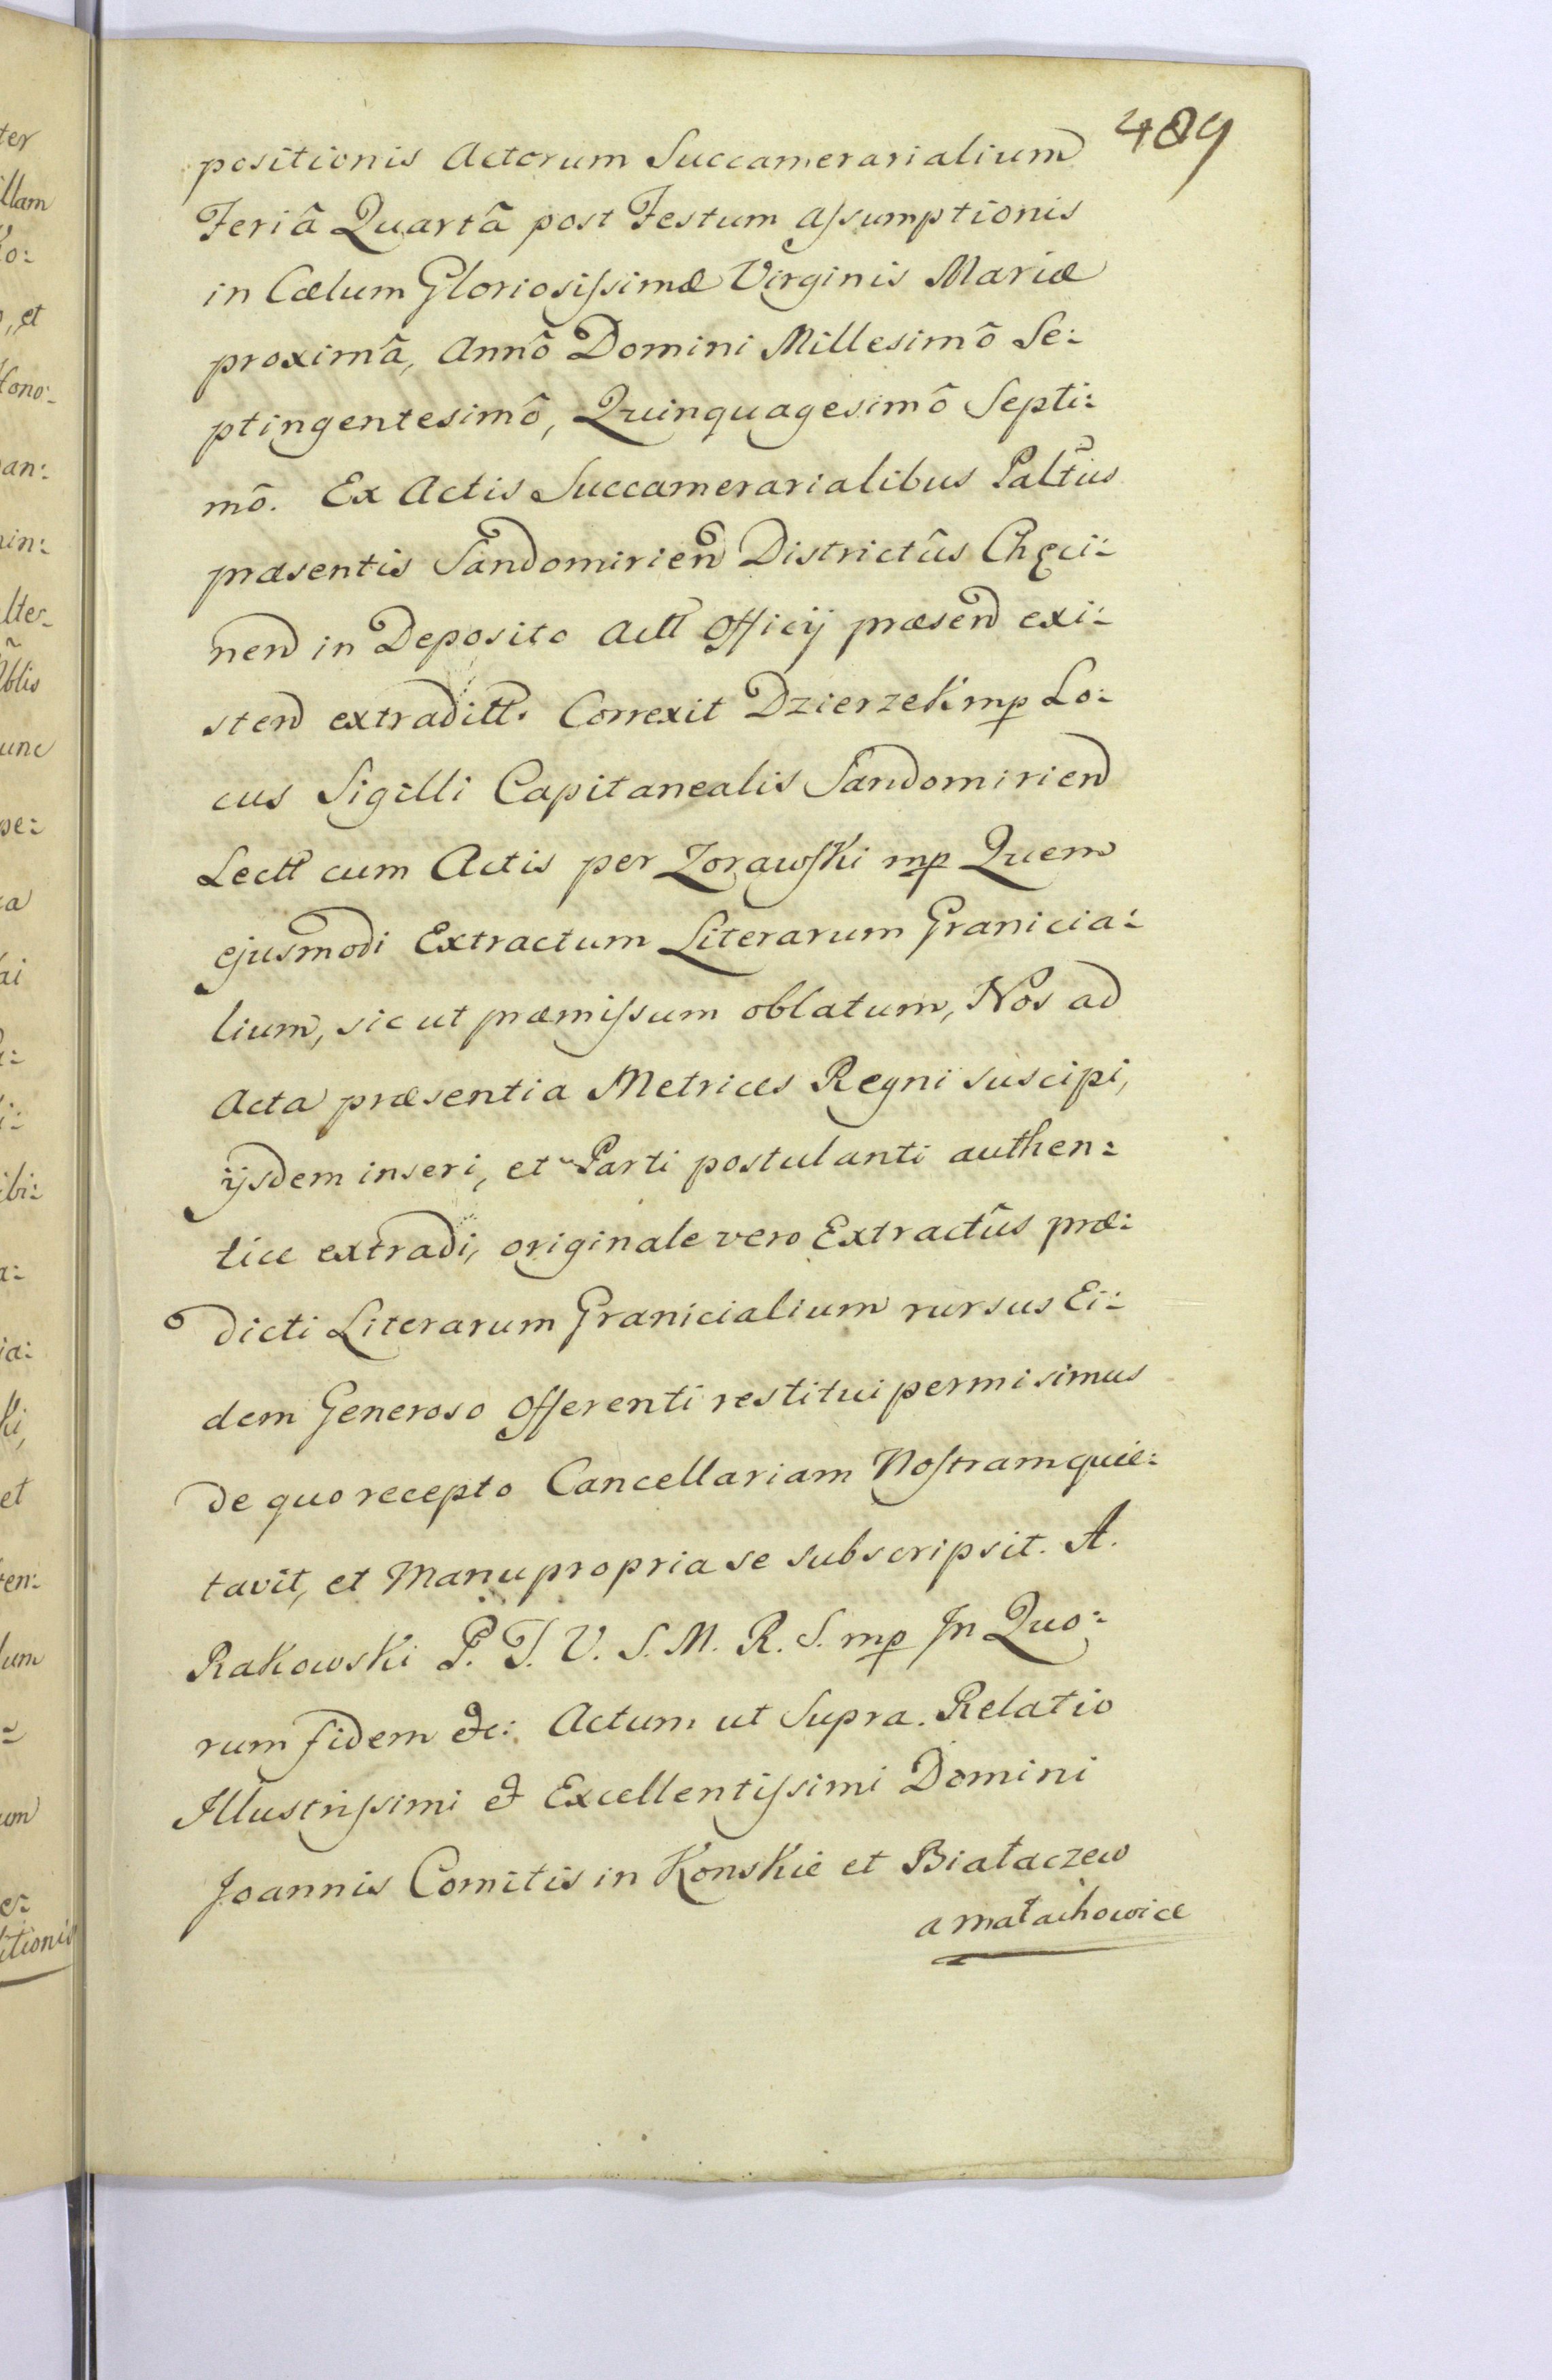 489
positionis Actorum Succamerarialium
Feriâ Quartâ post Festum Assumptionis
in Cælum Gloriosissimæ Virginis Mariæ
proximâ, Annô Domini Millesimô Se:
ptingentesimô, Quinquagesimô Septi:
mô. Ex Actis Succamerarialibus Paltûs
præsentis Sandomirien Districtûs Chęci:
nen in Deposito Actt Officij præsen exi:
sten extraditt. Correxit Dzierzek mp Lo:
cus Sigilli Capitanealis Sandomirien
Lectt cum Actis per Zorawski mp Quem
ejusmodi Extractum Literarum Granicia:
lium, sic ut præmissum oblatum, Nos ad
Acta præsentia Metrices Regni suscipi,
ijsdem inseri, et Parti postulanti authen:
tice extradi, originale vero Extractûs præ:
dicti Literarum Granicialium rursus Ei:
dem Generoso Offerenti restitui permisimus
de quo recepto Cancellariam Nostram quie:
tavit, et Manu propria se subscripsit. A.
Rakowski P. T. V. S. M. R. S. mp In Quo:
rum fidem &c: Actum ut Supra. Relatio
Illustrissimi & Excellentissimi Domini
Joannis Comitis in Konskie et Białaczew
a małachowice